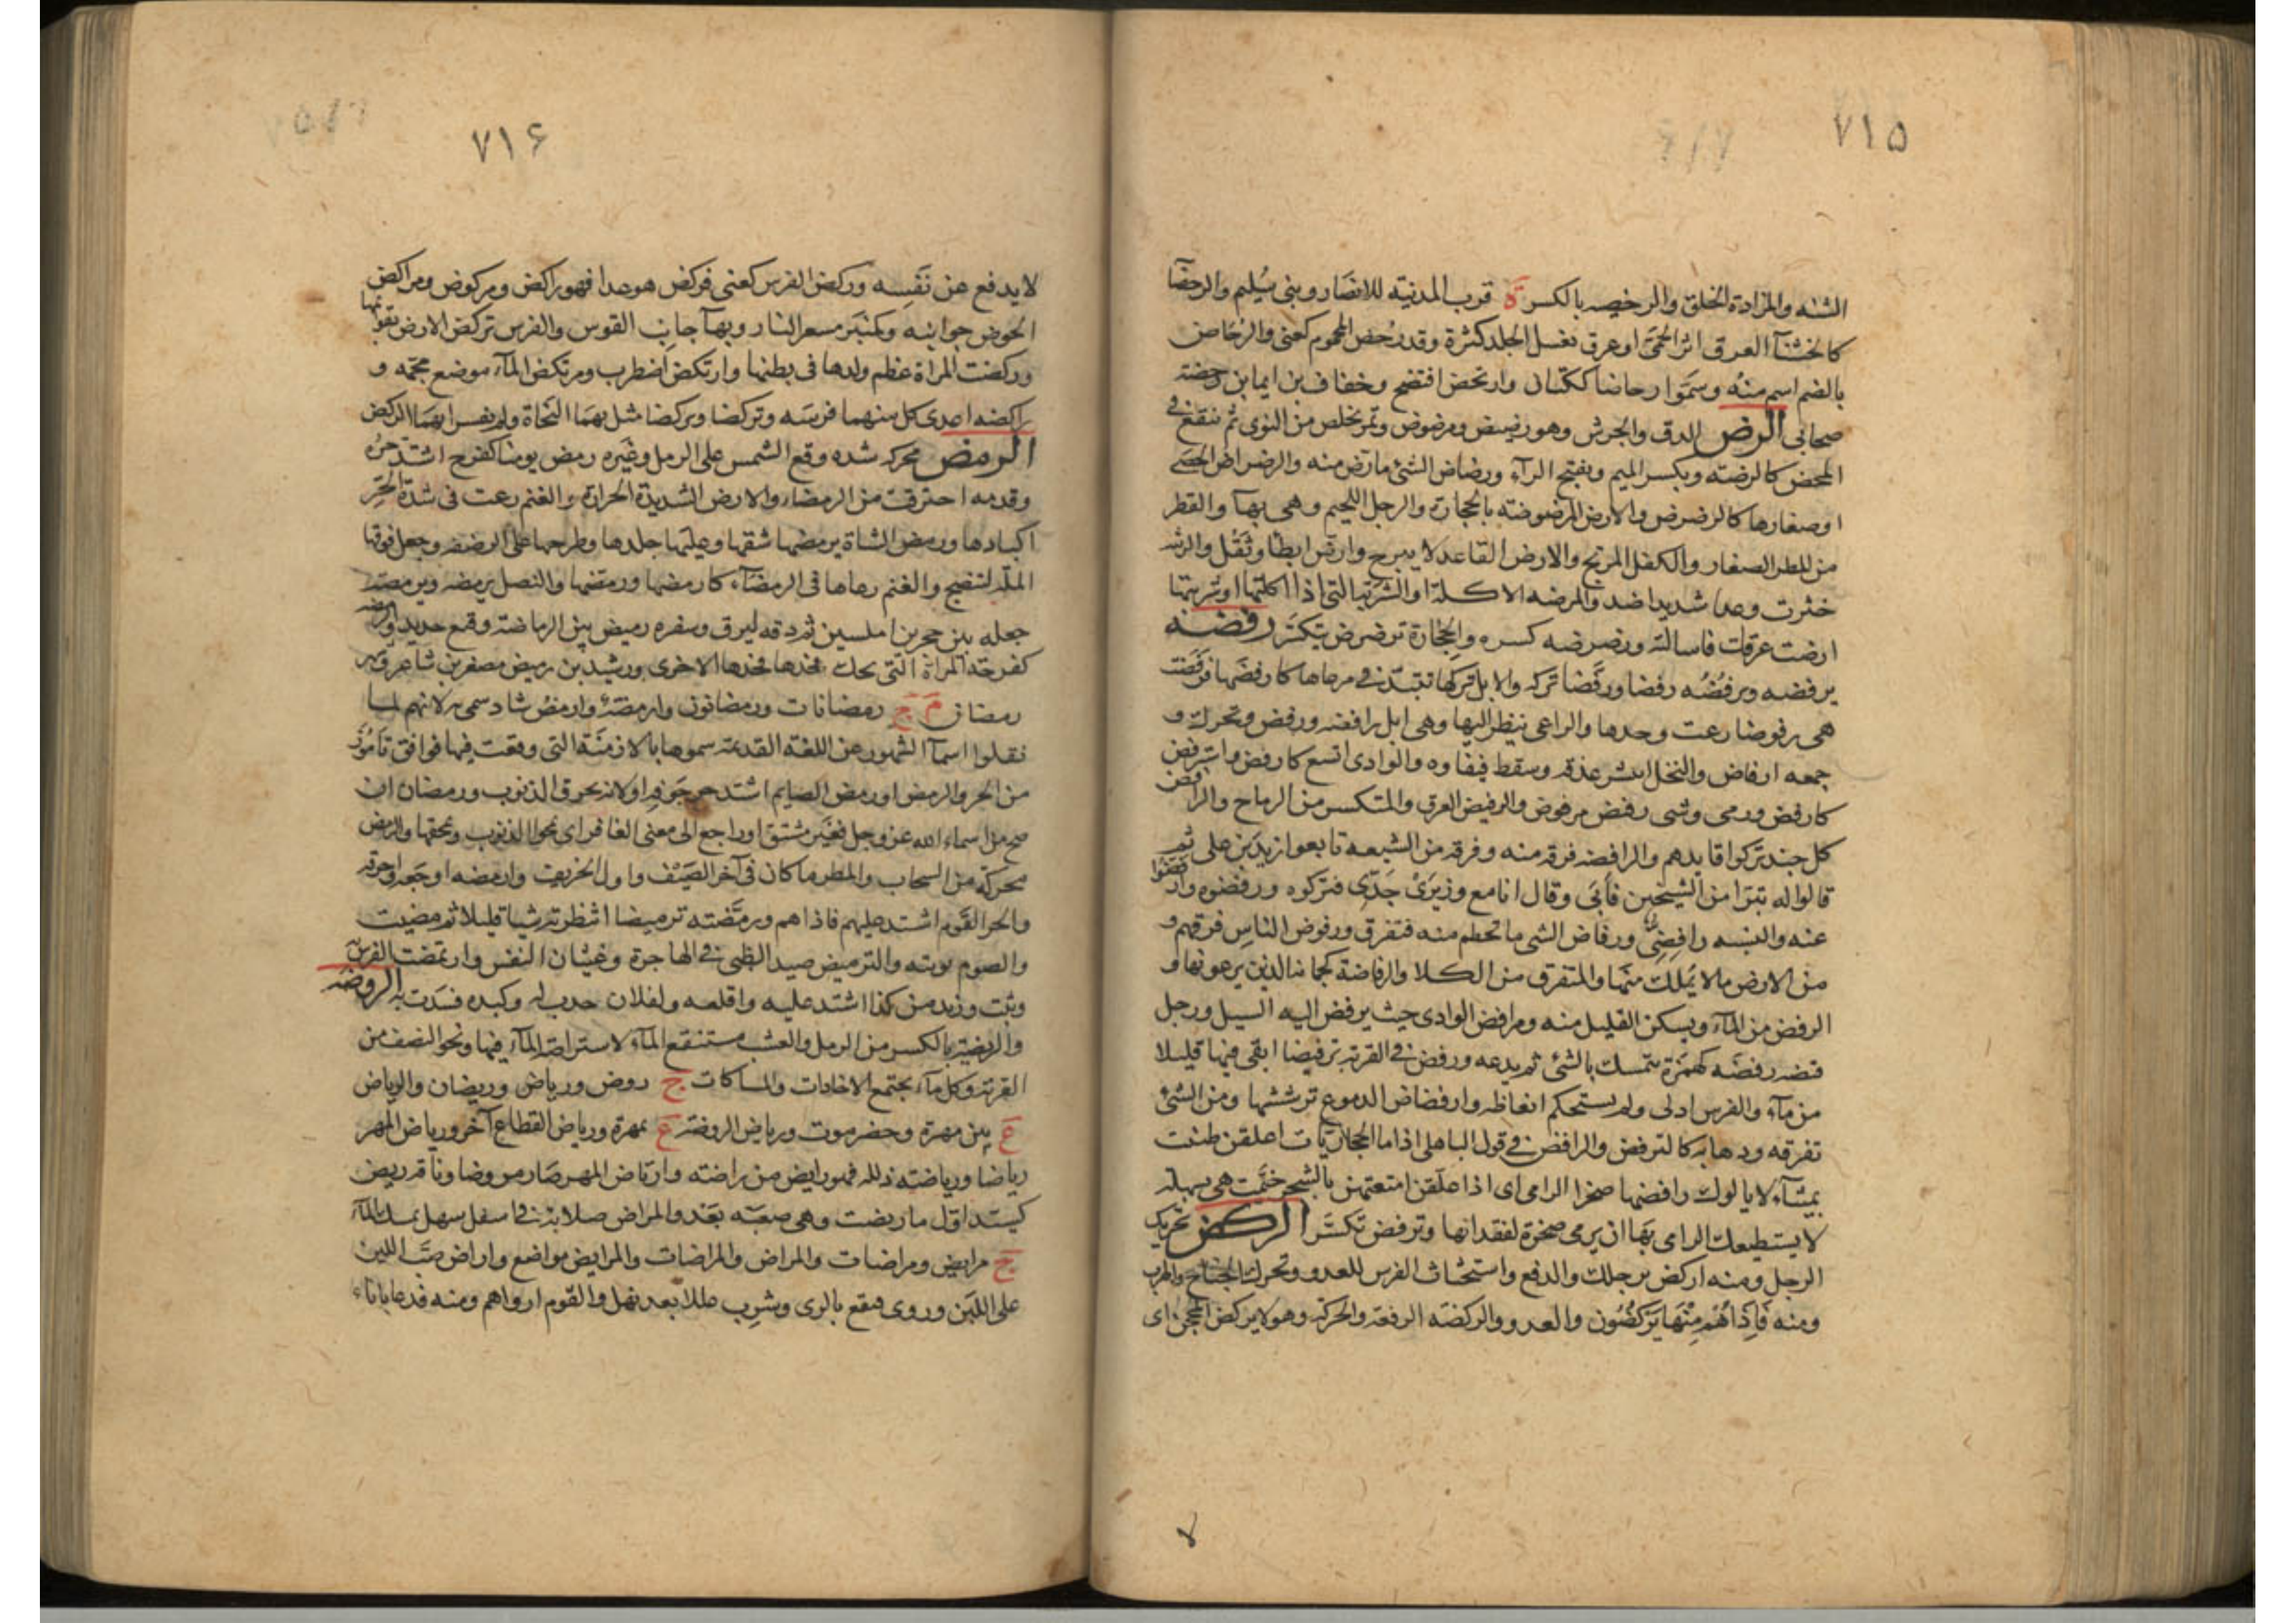 ٧١٥
الشنه والمزادة الخلق والرخيصه بالكسر ة قرب المدنية للانصار وبنى سليم والرحضآ
كالخششآ العرق اثر الحمى او عرق يغسل الجلد كثرة وقد رحض المحموم كعنى والرحاض
بالضم اسم منه وسموا رحاضا ككتان وارتحض افتضح وخفاف بن ايما بن رحضة
صحابى الرض الدق والجرش وهو رضيض ومرضوض وتمر يخلص من النوى ثم ينقع فى
المحض كالرضته وبكسر الميم وبفتح الرآء ورضاض الشئ مارض منه والرضراض الحصى
او صغارها كالرضرض والارض المرضوضته بالحجارة والرجل اللحيم وهى بهآ والقطر
من المطر الصغار والكفل المرتج والارض القاعد لا يبرح وارض ابطأ وثقل والرثيه
خثرت وعدا شديدا ضد والمرضه الاكلة او الشربة التى اذا اكلتها او شربتها
ارضت عرقك فاسالته ورضرضه كسره والحجارة ترضرض تكسر رفضه
يرفضه ويرفضه رفضا ورفضا تركه والابل تركها تتبدد فى مرعاها كارفضها فرفضت
هى رفوضا رعت وحدها والراعى ينظر اليها وهى ابل رافضه ورفض وتحرك و
جمعه ارفاض والنخل انتشر عذقه وسقط قيقاوه والوادى اتسع كارفض واسترفض
كارفض ورمى وشى رفض مرفوض والرفيض العرق والمتكسر من الرماح والرافض
كل جند تركوا قايدهم والرافضه فرقه منه وفرقه من الشيعه تابعوا زيد بن على ثم
قالوا له تبرا من الشيخين فأبى وقال انا مع وزيرى جدى فتركوه ورفضوه وارفضوا
عنه والنسبه رافضى ورفاض الشى ما تحطم منه فتفرق ورفوض الناس فرقهم و
من الارض مالا يملك منها والمتفرق من الكلا والرفاضة كجبانه الذين يرعونها و
الرفض من المآء ويسكن القليل منه ومرافض الوادى حيث يرفض اليه السيل ورجل
قبضه رفضه كهمزة يتمسك بالشئ ثم يدعه ورفض فى القربة ترفيضا ابقى فيها قليلا
من مآء والفرس ادلى ولم يستحكم انعاظه وارفضاض الدموع ترششها ومن الشئ
تفرقه وذهابه كالترفض والرافض فى قول الباهلى اذا ما الحجازيات اعلقن طنبت
بميثآء لا يالوك رافضها صخرا الرامى اى اذا علقن امتعتهن بالشجر خيمت هى بسهله
لا يستطيعك الرامى بها ان يرمى صخرة لفقدانها وترفض تكسر الركض تحريك
الرجل ومنه اركض برجلك والدفع واستحثاث الفرس للعدو وتحرك الجناح والهرب
ومنه فاذا هم منها يركضون والعدو والركضه الرفعة والحركة وهو لا يركض المحجن اى
٧١۶
لا يدفع عن نفسه وركض الفرس كعنى فركض هو عدا فهو راكض ومركوض ومراكض
الحوض جوانبه وكمنبر مسعر النار وبهآ جانب القوس والفرس تركض الارض بقوائمها
وركضت المراة عظم ولدها فى بطنها وارتكض اضطرب ومرتكض المآء موضع مجمه و
راكضه اعدى كل منهما فرسه وتركضا وتركضا مثل بهما النحاة ولم يفسرا بهما الركض
الرمض محركه شده وقع الشمس على الرمل وغيره رمض يومنا كفرح اشتد حره
وقدمه احترقت من الرمضاء والارض الشديدة الحرارة والغنم رعت فى شدة الحر
اكبادها ورمض الشاة يرمضها شقها وعليها جلدها وطرحها على الرضفه وجعل فوقها
المله لتنضج والغنم رعاها فى الرمضآء كارمضها ورمضها والنصل يرمضه ويرمضه
جعله بين حجرين املسين ثم دقه ليرق وسفره رميض بين الرماضة وقمع حديد والرمضه
كفرحه المراة التى يحك فخذها فخذها الاخرى ورشيد بن رميض مصغرين شاعر وشهر
رمضان م ج رمضانات ورمضانون وارمضة وارمض شاد سمى به لانهم لما
نقلوا اسمآ الشهور عن اللغة القديمة سموها بالازمنة التى وقعت فيها فوافق ناموز
من الحر والرمض او رمض الصايم اشتد حر جوفه او لانه يحرق الذنوب ورمضان ان
صح من اسماء الله عز وجل فغير مشتق او راجع الى معنى الغافر اى يمحوا الذنوب ويمحقها والرمض
محركة من السحاب والمطر ما كان فى آخر الصيف واول الخريف وارمضه اوجعه واحرقه
والحر القوم اشتد عليهم فاذاهم ورمضته ترميضا انتظرته شيا قليلا ثم مضيت
والصوم نويته والترميض صيد الظبى فى الهاجرة وغثيان النفس وارتمضت الفرس به
وثبت وزيد من كذا اشتد عليه واقلعه ولفلان حدب له وكبده فسدت به الروضه
والريضة بالكسر من الرمل والعشب مستنقع المآء لاستراضة المآء فيها ونحو النصف من
القربة وكل مآء يجتمع الاخاذات والمساكات ج روض ورياض وريضان والرياض
ع بين مهرة وحضرموت ورياض الروضة ع بمهرة ورياض القطاع آخر ورياض المهر
رياضا ورياضته ذلله فهو رايض من راضته وارتاض المهر صار مروضا وناقه ريض
كسيد اول ما ريضت وهى صعبه بعد والمراض صلابة فى اسفل سهل تمسك المآء
ج مرايض ومراضات والمراض والمراضات والمرايض مواضع واراض صب اللبن
على اللبن وروى فنقع بالرى وشرب عللا بعد نهل والقوم ارواهم ومنه فدعا باناء